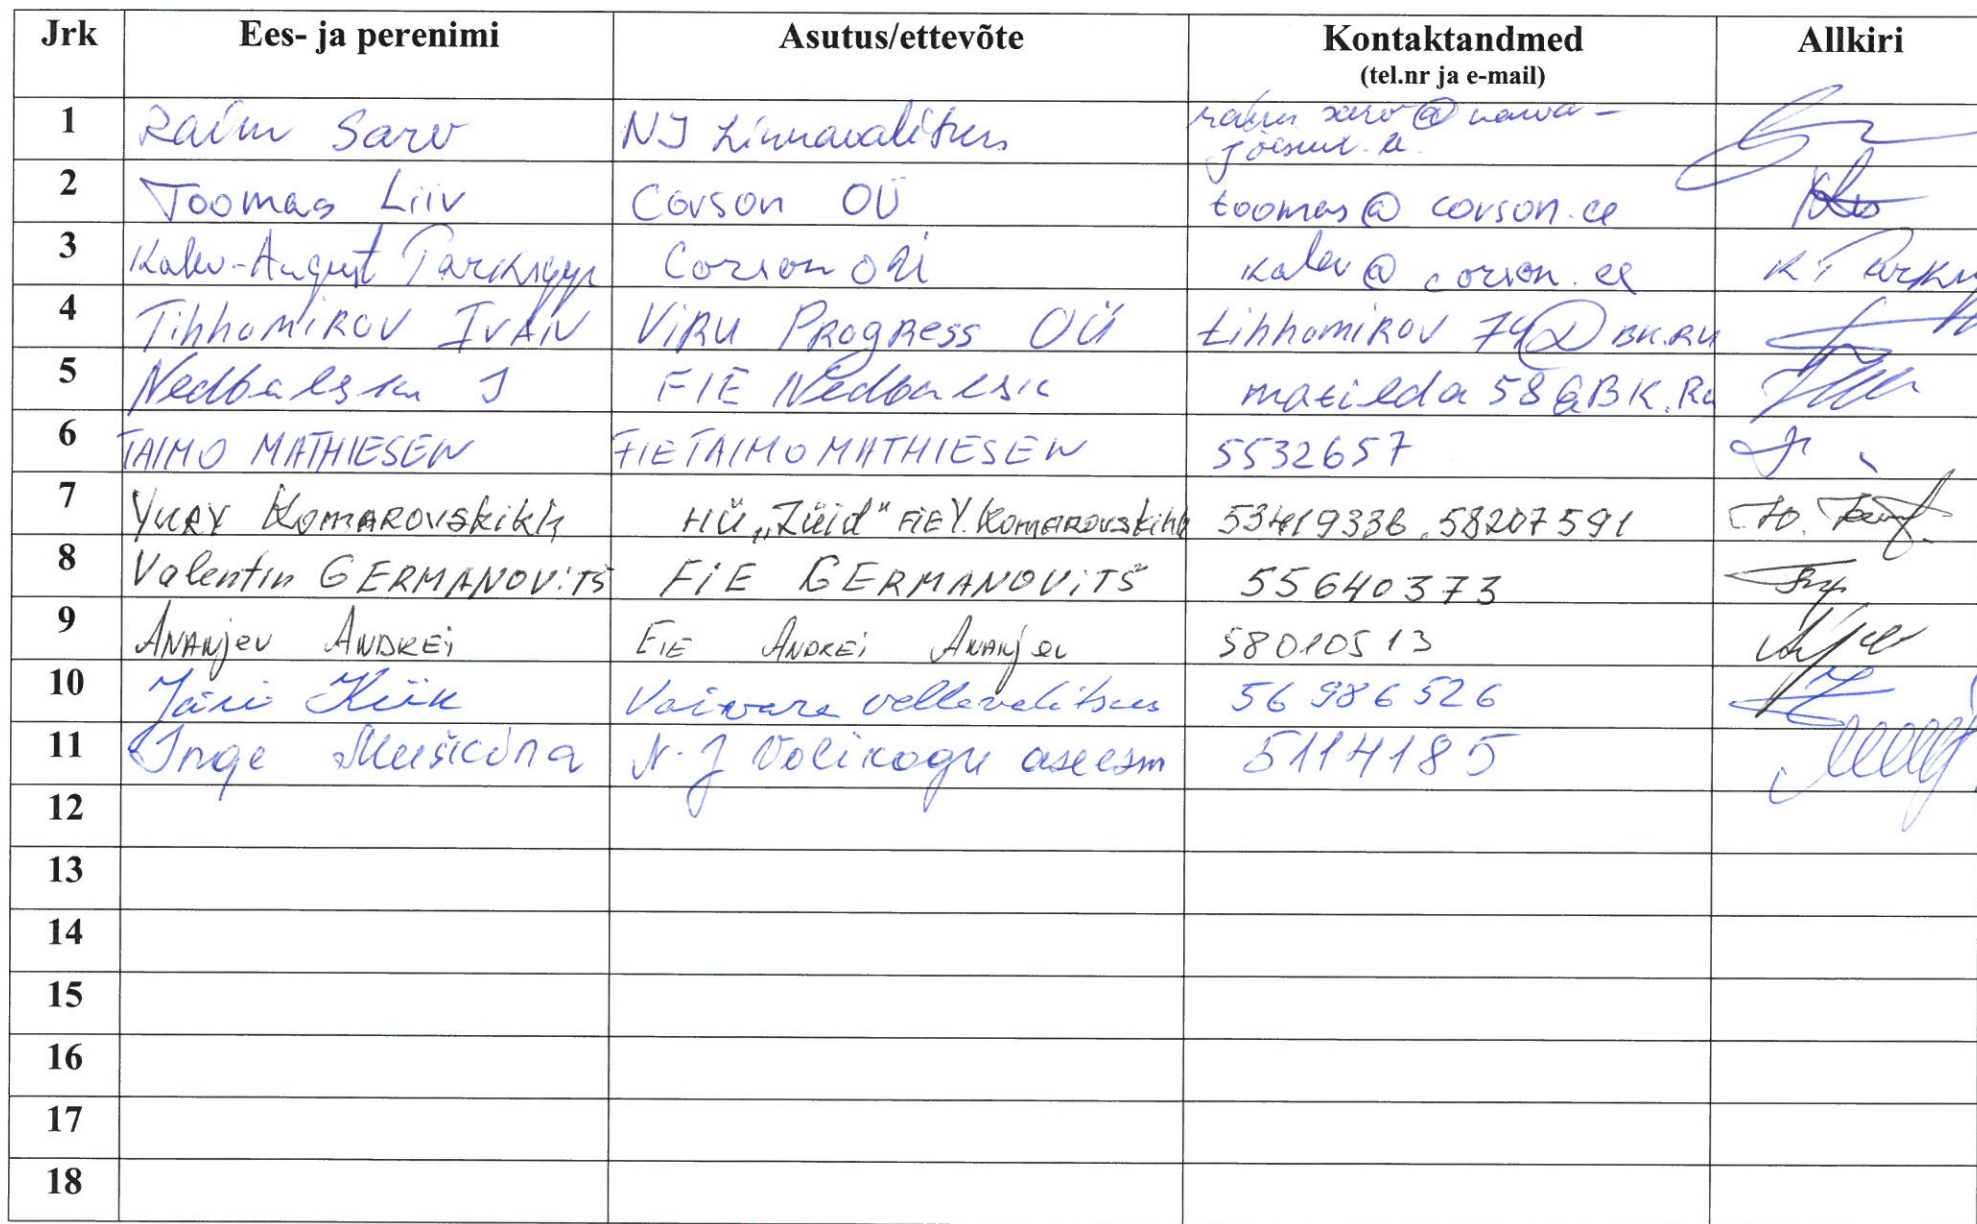 Jrk Ees- ja perenimi Asutus/ettevõte Kontaktandmed Allkiri
(tel.nr ja e-mail)
1 Raim Sarv NJ Linnavalitsus raim sarv@narva-
joesuu.
2 Toomas Liiv Corson OÜ toomas@corson.ee
3 Kalev-August Parksepp Corson OÜ kalev@corson.ee
4 Tihhomirov Ivan Viru Progress OÜ tihhomirov 74@BK.RU
5 FIE matilda58@BK.Ru
6 TAIMO MATHIESEN FIE TAIMO MATHIESEN 5532657
7 Yury Komarovskikh HÜ „Züid" FIE Y. Komarovskihh 53419336. 58207591
8 Valentin GERMANOViTŠ FiE GERMANOViTŠ 55640373
9 Ananjev Andrei Fie Andrei Ananjev 58010513
10 Jüri Kiik Vaivara vallavalitsus 56986526
11 Inge Muškina N-J Volikogu aseesm 5114185
12
13
14
15
16
17
18